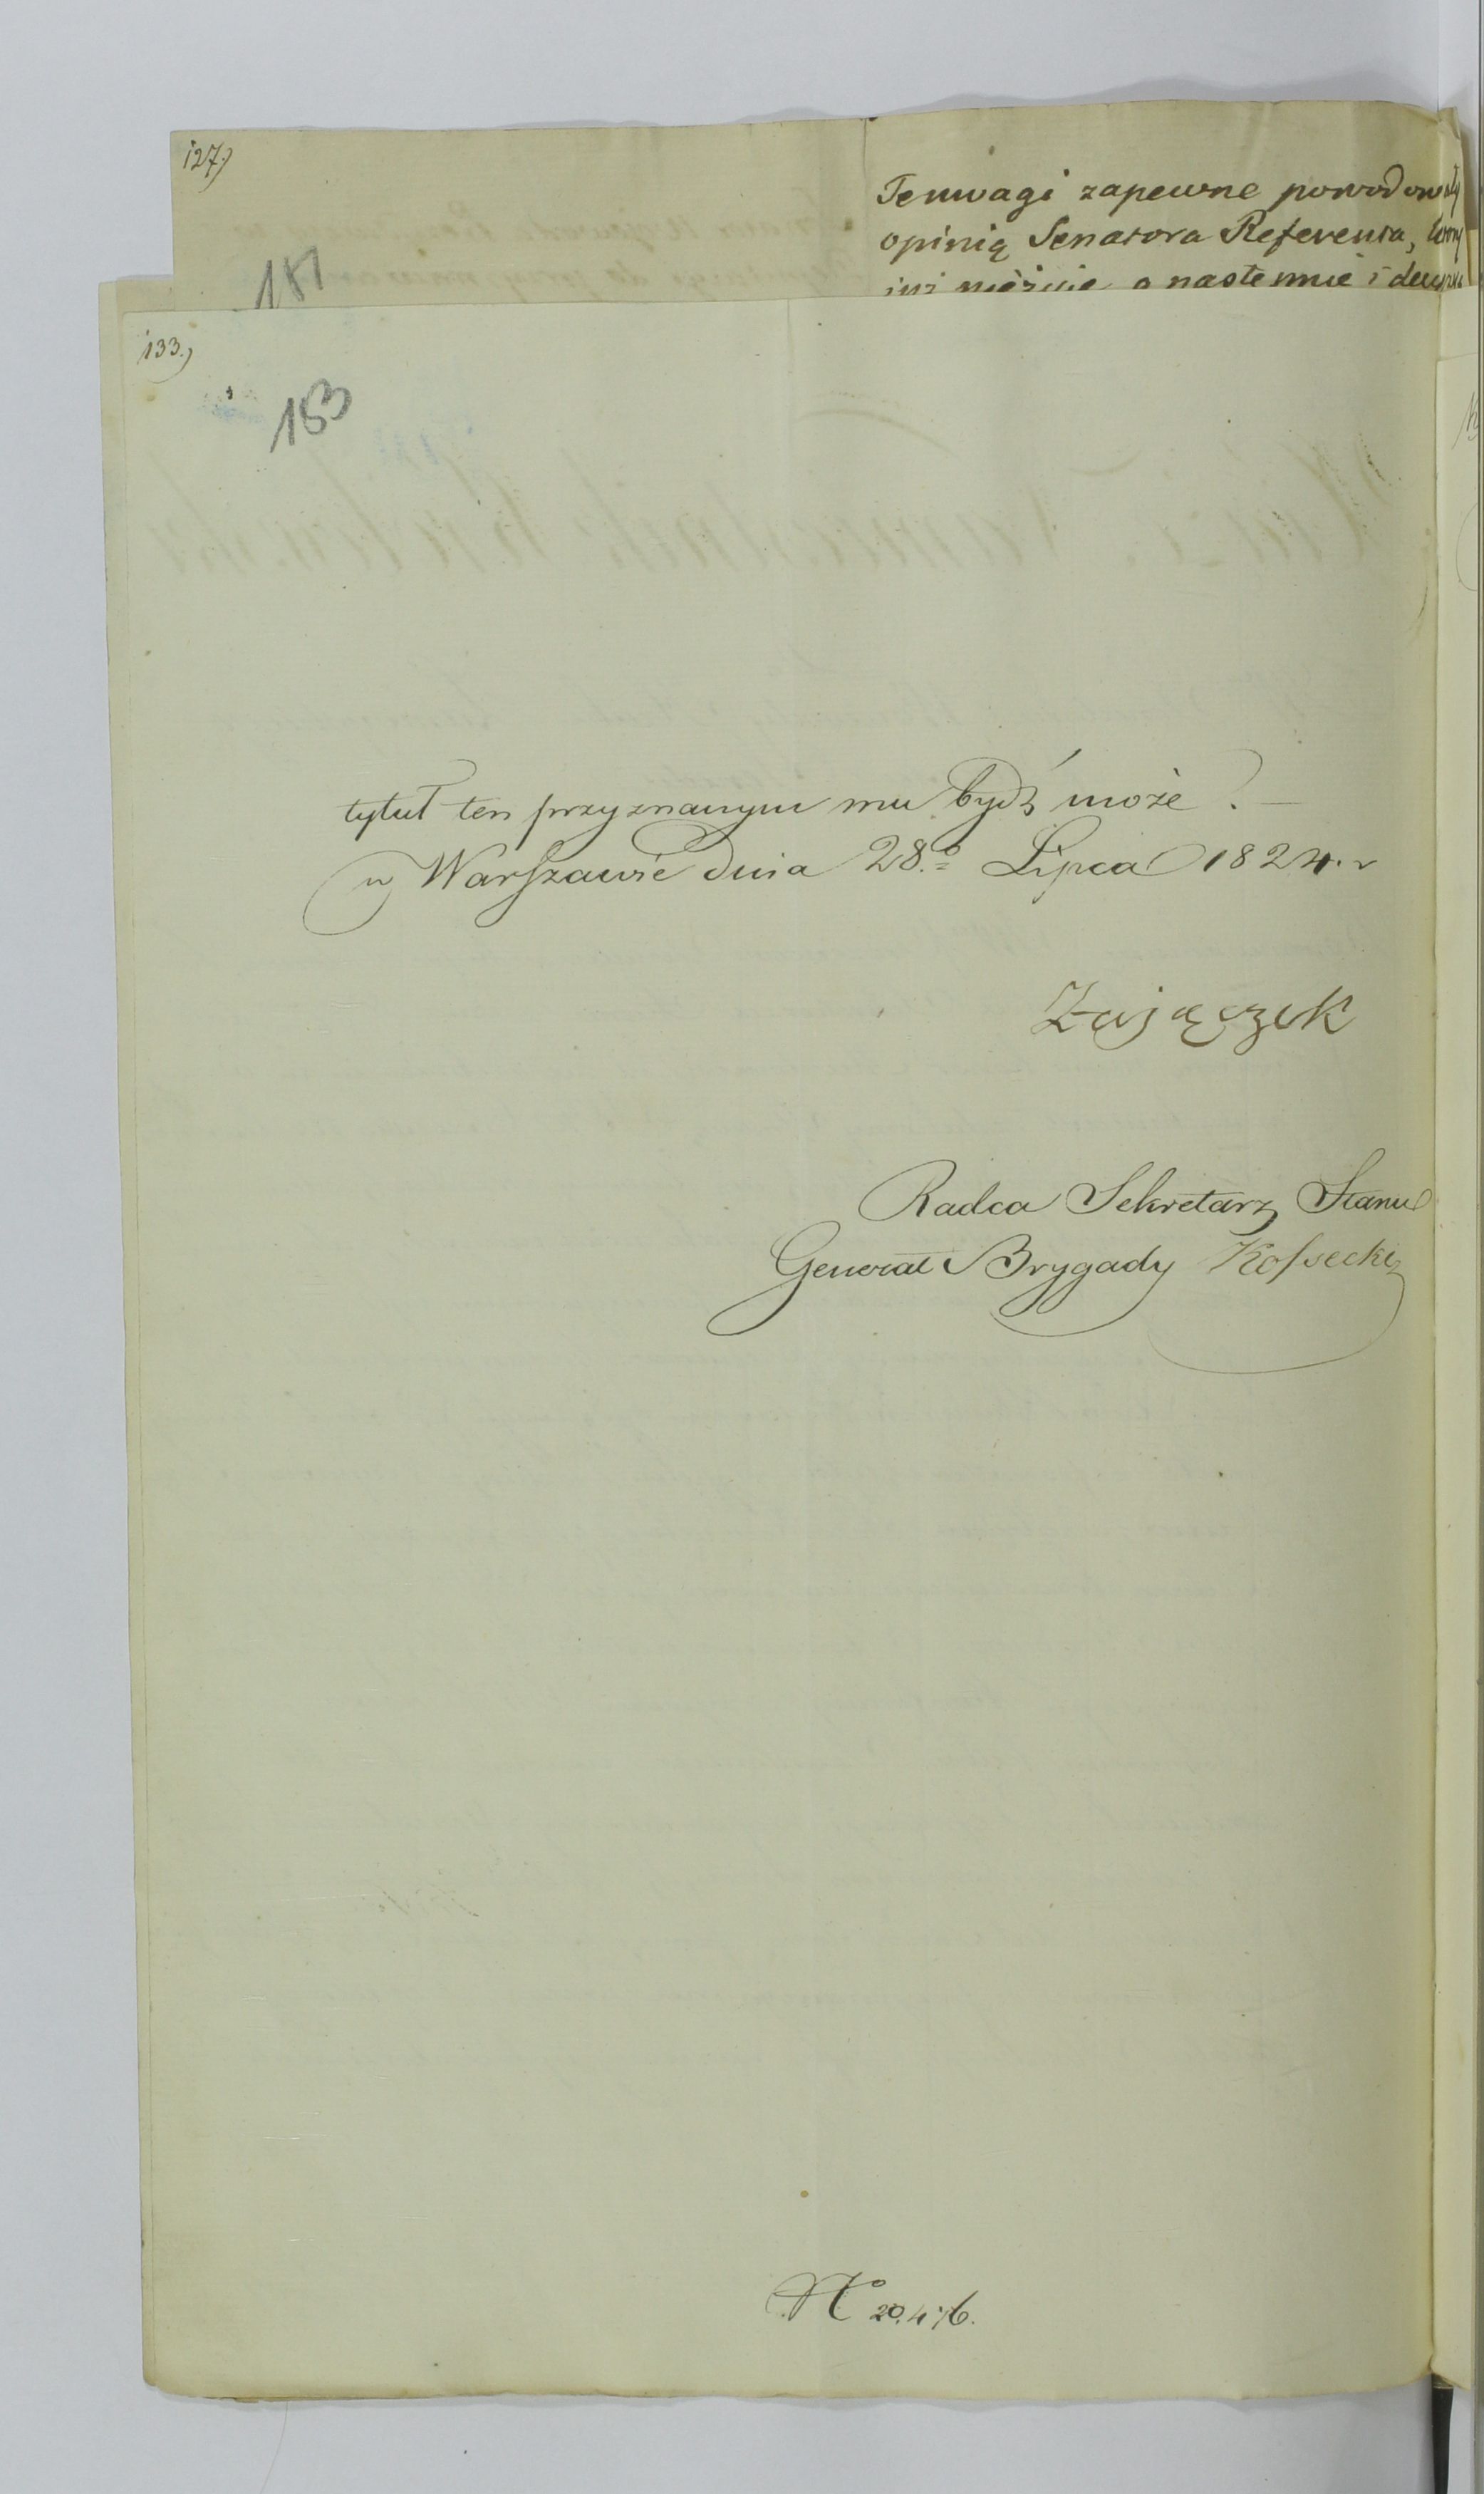 127.)
181
Te uwagi zapewne powodowały
opinią Senatora Referenta,
już nastempnie i
133.)
183
tytuł ten przyznanym mu bydź może?—
w Warszawie dnia 28.º Lipca 1824. r
Zajączek
Radca Sekretarz Stanu
Generał Brygady Kossecki
Nº 20.476.